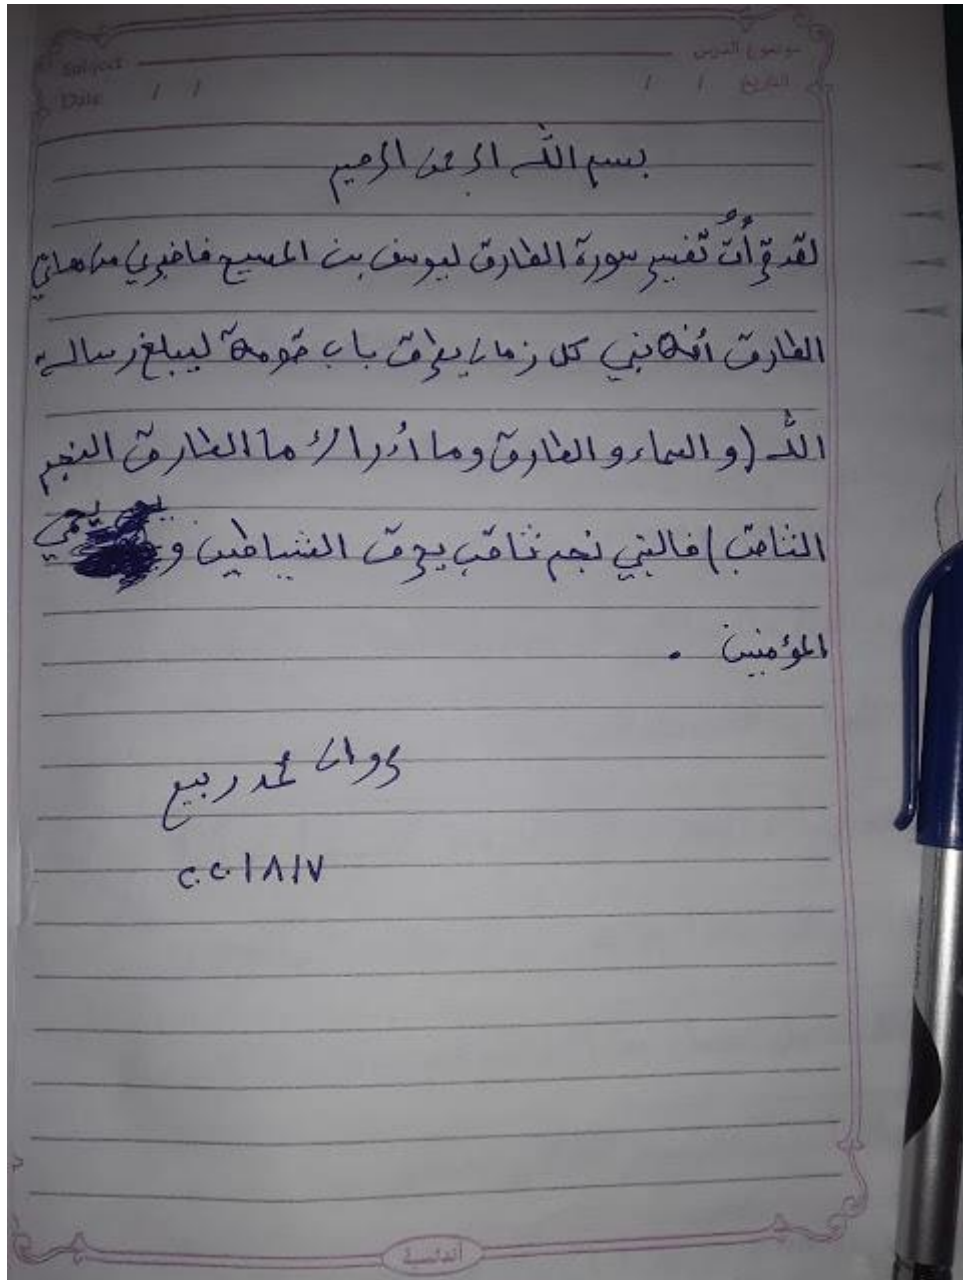 Subject موضوع الدرس
Date / / التاريخ / /
بسم الله الرحمن الرحيم
لقد قرأتُ تفسير سورة الطارق ليوسف بن المسيح فاخبرني من هو
الطارق أنه نبي كل زمان يطرق باب قومه ليبلغ رسالة
الله (والسماء والطارق وما أدراك ما الطارق النجم
الثاقب) فالنبي نجم ثاقب يحرق الشياطين و يحمي
المؤمنين .
مروان محمد ربيع
٢٠٢٠/٨/٧
أندلسية